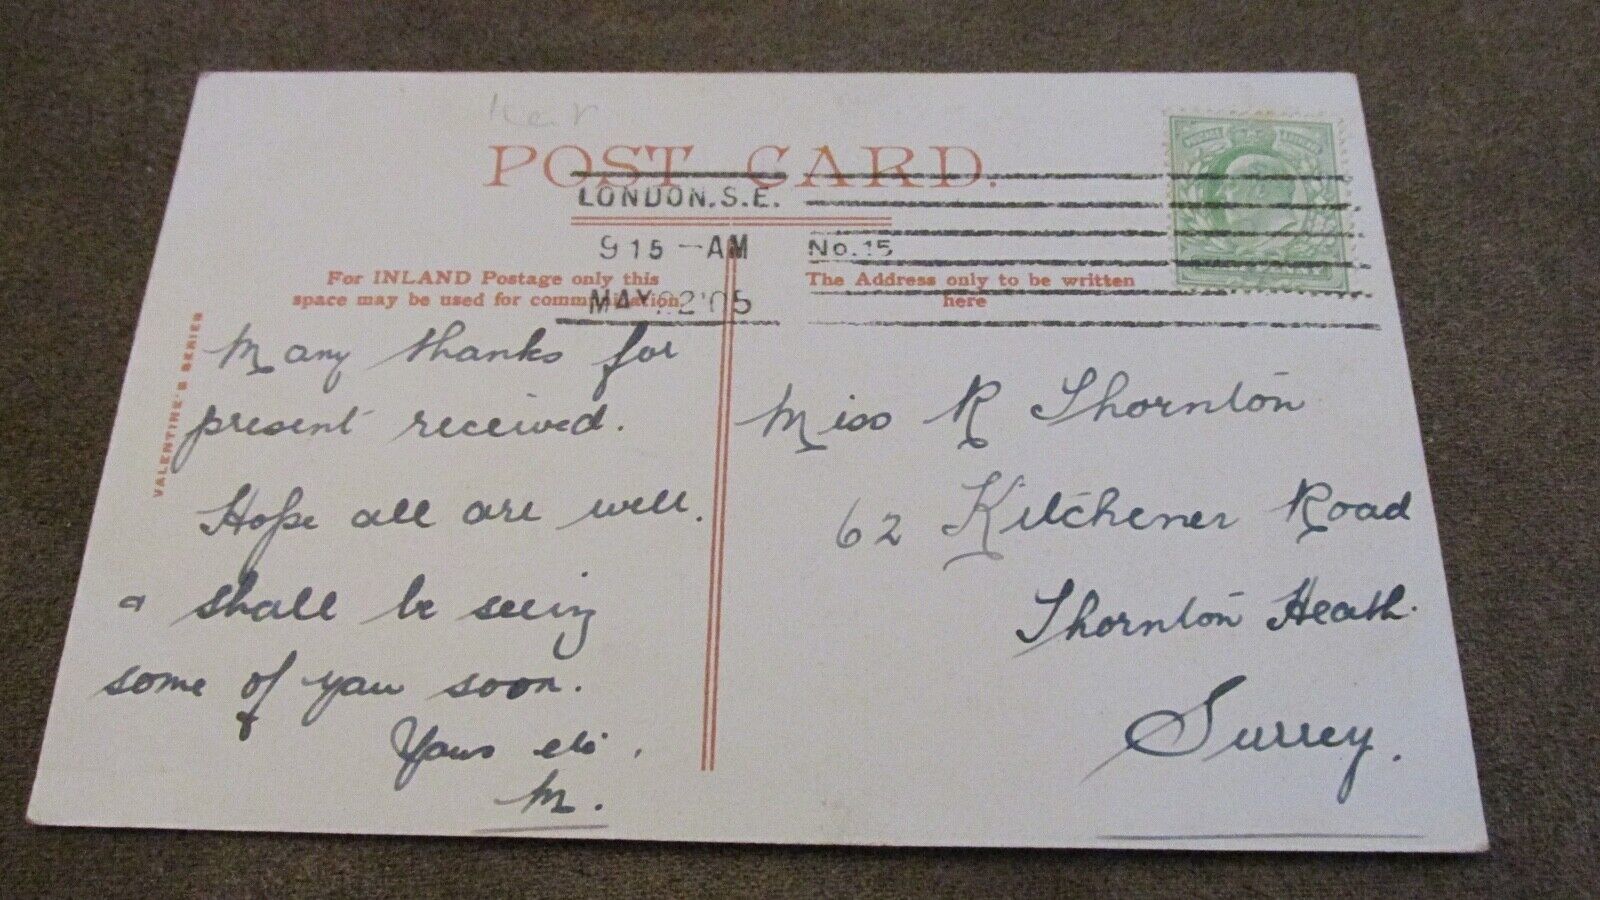 POST CARD.
LONDON.S.E.
9 15 - AM
No.15
MAY 22 '05
For INLAND Postage only this
space may be used for communication
The Address only to be written
here
VALENTINE'S SERIES
Many thanks for
present received.
Hope all are well.
& shall be seeing
some of you soon.
Yours etc.
M.
Miss R Thornton
62 Kitchener Road
Thornton Heath.
Surrey.